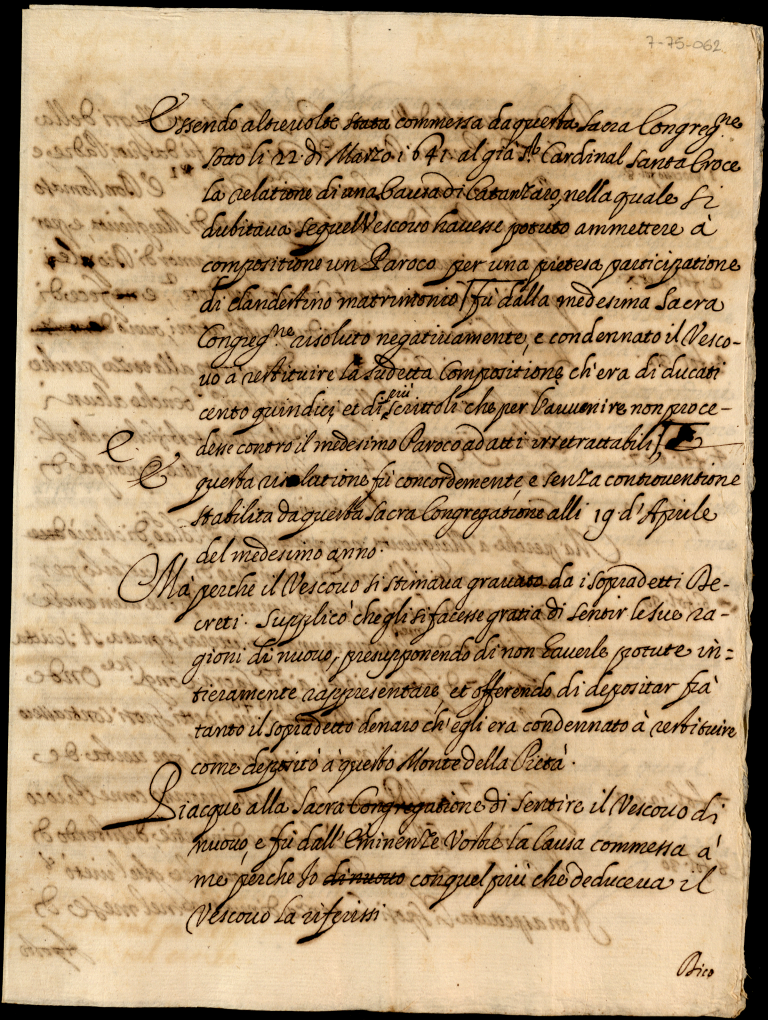 7-75-062
Essendo altre volte stata commessa da questa sacra Congreg.ne
sotto li 22. di Marzo 1641 al già S.r Cardinal Santa Croce
la relatione di una Causa di Catanzaro, nella quale si
dubitava se quel Vescovo havesse potuto ammettere à
compositione un Paroco per una pretesa participatione
di clandestino matrimonio fù dalla medesima Sacra
Congreg.ne risoluto negativamente, e condennato il Vesco-
vo à restituire la sudetta Compositione, ch'era di ducati
cento quindici, et di più scrittoli che per l'avvenire non proce-
desse contro il medesimo Paroco ad atti irretrattabili, E
E questa risolatione fù concordemente, e senza controventione
stabilita da questa Sacra Congregatione alli 19 d'Aprile
del medesimo anno.
Mà perche il Vescovo si stimava gravato da i sopradetti De-
creti. Supplicò che gli si facesse gratia di sentir le sue ra-
gioni di nuovo, presupponendo di non haverle potute in=
tieramente rappresentare et offerendo di depositar frà
tanto il sopradetto denaro ch'egli era condennato à restituire
come depositò à questo Monte della Pietà.
Piacque alla Sacra Congregatione di sentire il Vescovo di
nuovo, e fù dall'Eminenze Vostre la Causa commessa à
me, perche Io di nuovo con quel più che deduceva il
Vescovo la riferissi
Dico